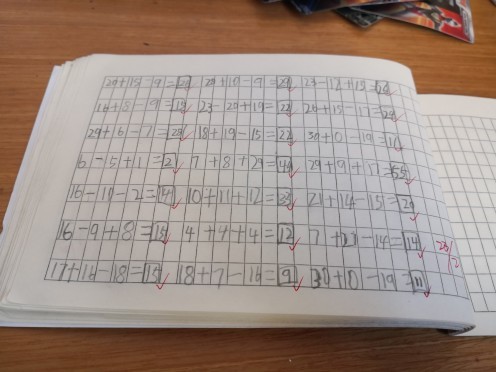 20+15-9=26 20+18-9=29 23-12+15=26
16+8-9=15 23-20+19=22 26+15-17=24
29+6-7=28 18+19-15=22 30+0-19=11
7+8+29=44 29+9+17=55
10+11+12=33 21+14-15=20
16-9+8=15 4+4+4=12 7+21-14=14
17+16-18=15 18+7-16=9 30+0-19=11